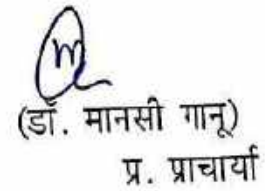 (डॉ. मानसी गानू)
प्र. प्राचार्या